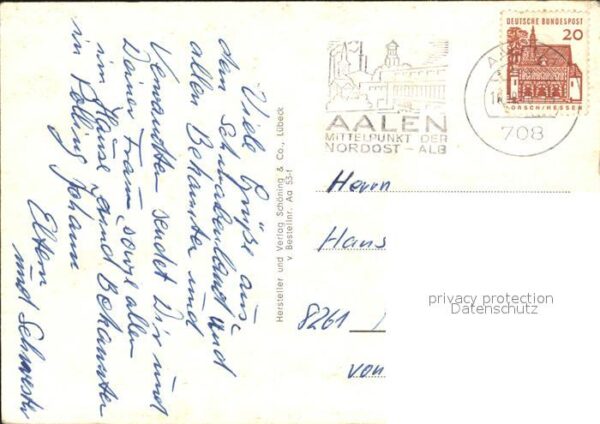 Viele Grüße aus
dem Schwabenland und
allen Bekannten und
Verwandten sendet Dir und
Deiner Frau, sowie allen
im Hause und Bekannten
in Polling Johann
Eltern
und Schwester
Hersteller und Verlag Schöning & Co., Lübeck
v Bestellnr. Aa 53-f
AALEN
MITTELPUNKT DER
NORDOST - ALB
708
DEUTSCHE BUNDESPOST
20
LORSCH/HESSEN
Herrn
Hans
8261
von
privacy protection
Datenschutz